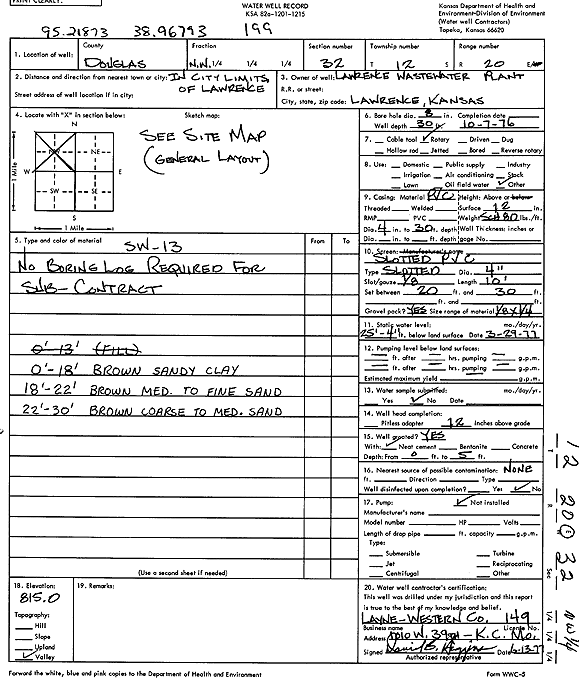 PRINT CLEARLY.
WATER WELL RECORD
KSA 82a-1201-1215
Kansas Department of Health and
Environment-Division of Environment
(Water well Contractors)
Topeka, Kansas 66620
95.21873 38.96793 199
1. Location of well:
County
DOUGLAS
Fraction
N.W. 1/4 1/4 1/4
Section number
32
Township number
T 12 S
Range number
R 20
2. Distance and direction from nearest town or city: IN CITY LIMITS
OF LAWRENCE
Street address of well location if in city:
3. Owner of well: LAWRENCE WASTEWATER PLANT
R.R. or street:
City, state, zip code: LAWRENCE, KANSAS
4. Locate with "X" in section below:
Sketch map:
N
NW NE
W E
SW SE
S
1 Mile
1 Mile
SEE SITE MAP
(GENERAL LAYOUT)
6. Bore hole dia. 8 in. Completion date
Well depth 30 ft. 10-7-76
7. Cable tool ✓ Rotary Driven Dug
Hollow rod Jetted Bored Reverse rotary
8. Use: Domestic Public supply Industry
Irrigation Air conditioning Stock
Lawn Oil field water ✓ Other
9. Casing: Material PVC Height: Above or below
Threaded Welded Surface 12 in.
RMP PVC Weight SCH 80 lbs./ft.
Dia. 4 in. to 30 ft. depth Wall Thickness: inches or
Dia. in. to ft. depth gage No.
10. Screen: Manufacturer's name
SLOTTED PVC
Type SLOTTED Dia. 4"
Slot/gauze 1/8 Length 10'
Set between 20 ft. and 30 ft.
ft. and ft.
Gravel pack? YES Size range of material 1/8 x 1/4
5. Type and color of material
From To
SW-13
NO BORING LOG REQUIRED FOR
SUB-CONTRACT
0'-13' (FILL)
0'-18' BROWN SANDY CLAY
18'-22' BROWN MED. TO FINE SAND
22'-30' BROWN COARSE TO MED. SAND
(Use a second sheet if needed)
11. Static water level: mo./day/yr.
25'-4" ft. below land surface Date 3-29-77
12. Pumping level below land surfaces:
ft. after hrs. pumping g.p.m.
ft. after hrs. pumping g.p.m.
Estimated maximum yield g.p.m.
13. Water sample submitted: mo./day/yr.
Yes ✓ No Date
14. Well head completion:
Pitless adapter 12 Inches above grade
15. Well grouted? YES
With: ✓ Neat cement Bentonite Concrete
Depth: From 0 ft. to 5 ft.
16. Nearest source of possible contamination: NONE
ft. Direction Type
Well disinfected upon completion? Yes ✓ No
17. Pump: ✓ Not installed
Manufacturer's name
Model number HP Volts
Length of drop pipe ft. capacity g.p.m.
Type:
Submersible Turbine
Jet Reciprocating
Centrifugal Other
18. Elevation:
815.0
Topography:
Hill
Slope
Upland
✓ Valley
19. Remarks:
20. Water well contractor's certification:
This well was drilled under my jurisdiction and this report
is true to the best of my knowledge and belief.
LAYNE-WESTERN CO. 149
Business name License No.
Address 1010 W. 39TH - K.C. Mo.
Signed Date 6-13-77
Authorized representative
Forward the white, blue and pink copies to the Department of Health and Environment
Form WWC-5
T 12
R 20 E
Sec 32
NW 1/4
1/4 1/4 1/4